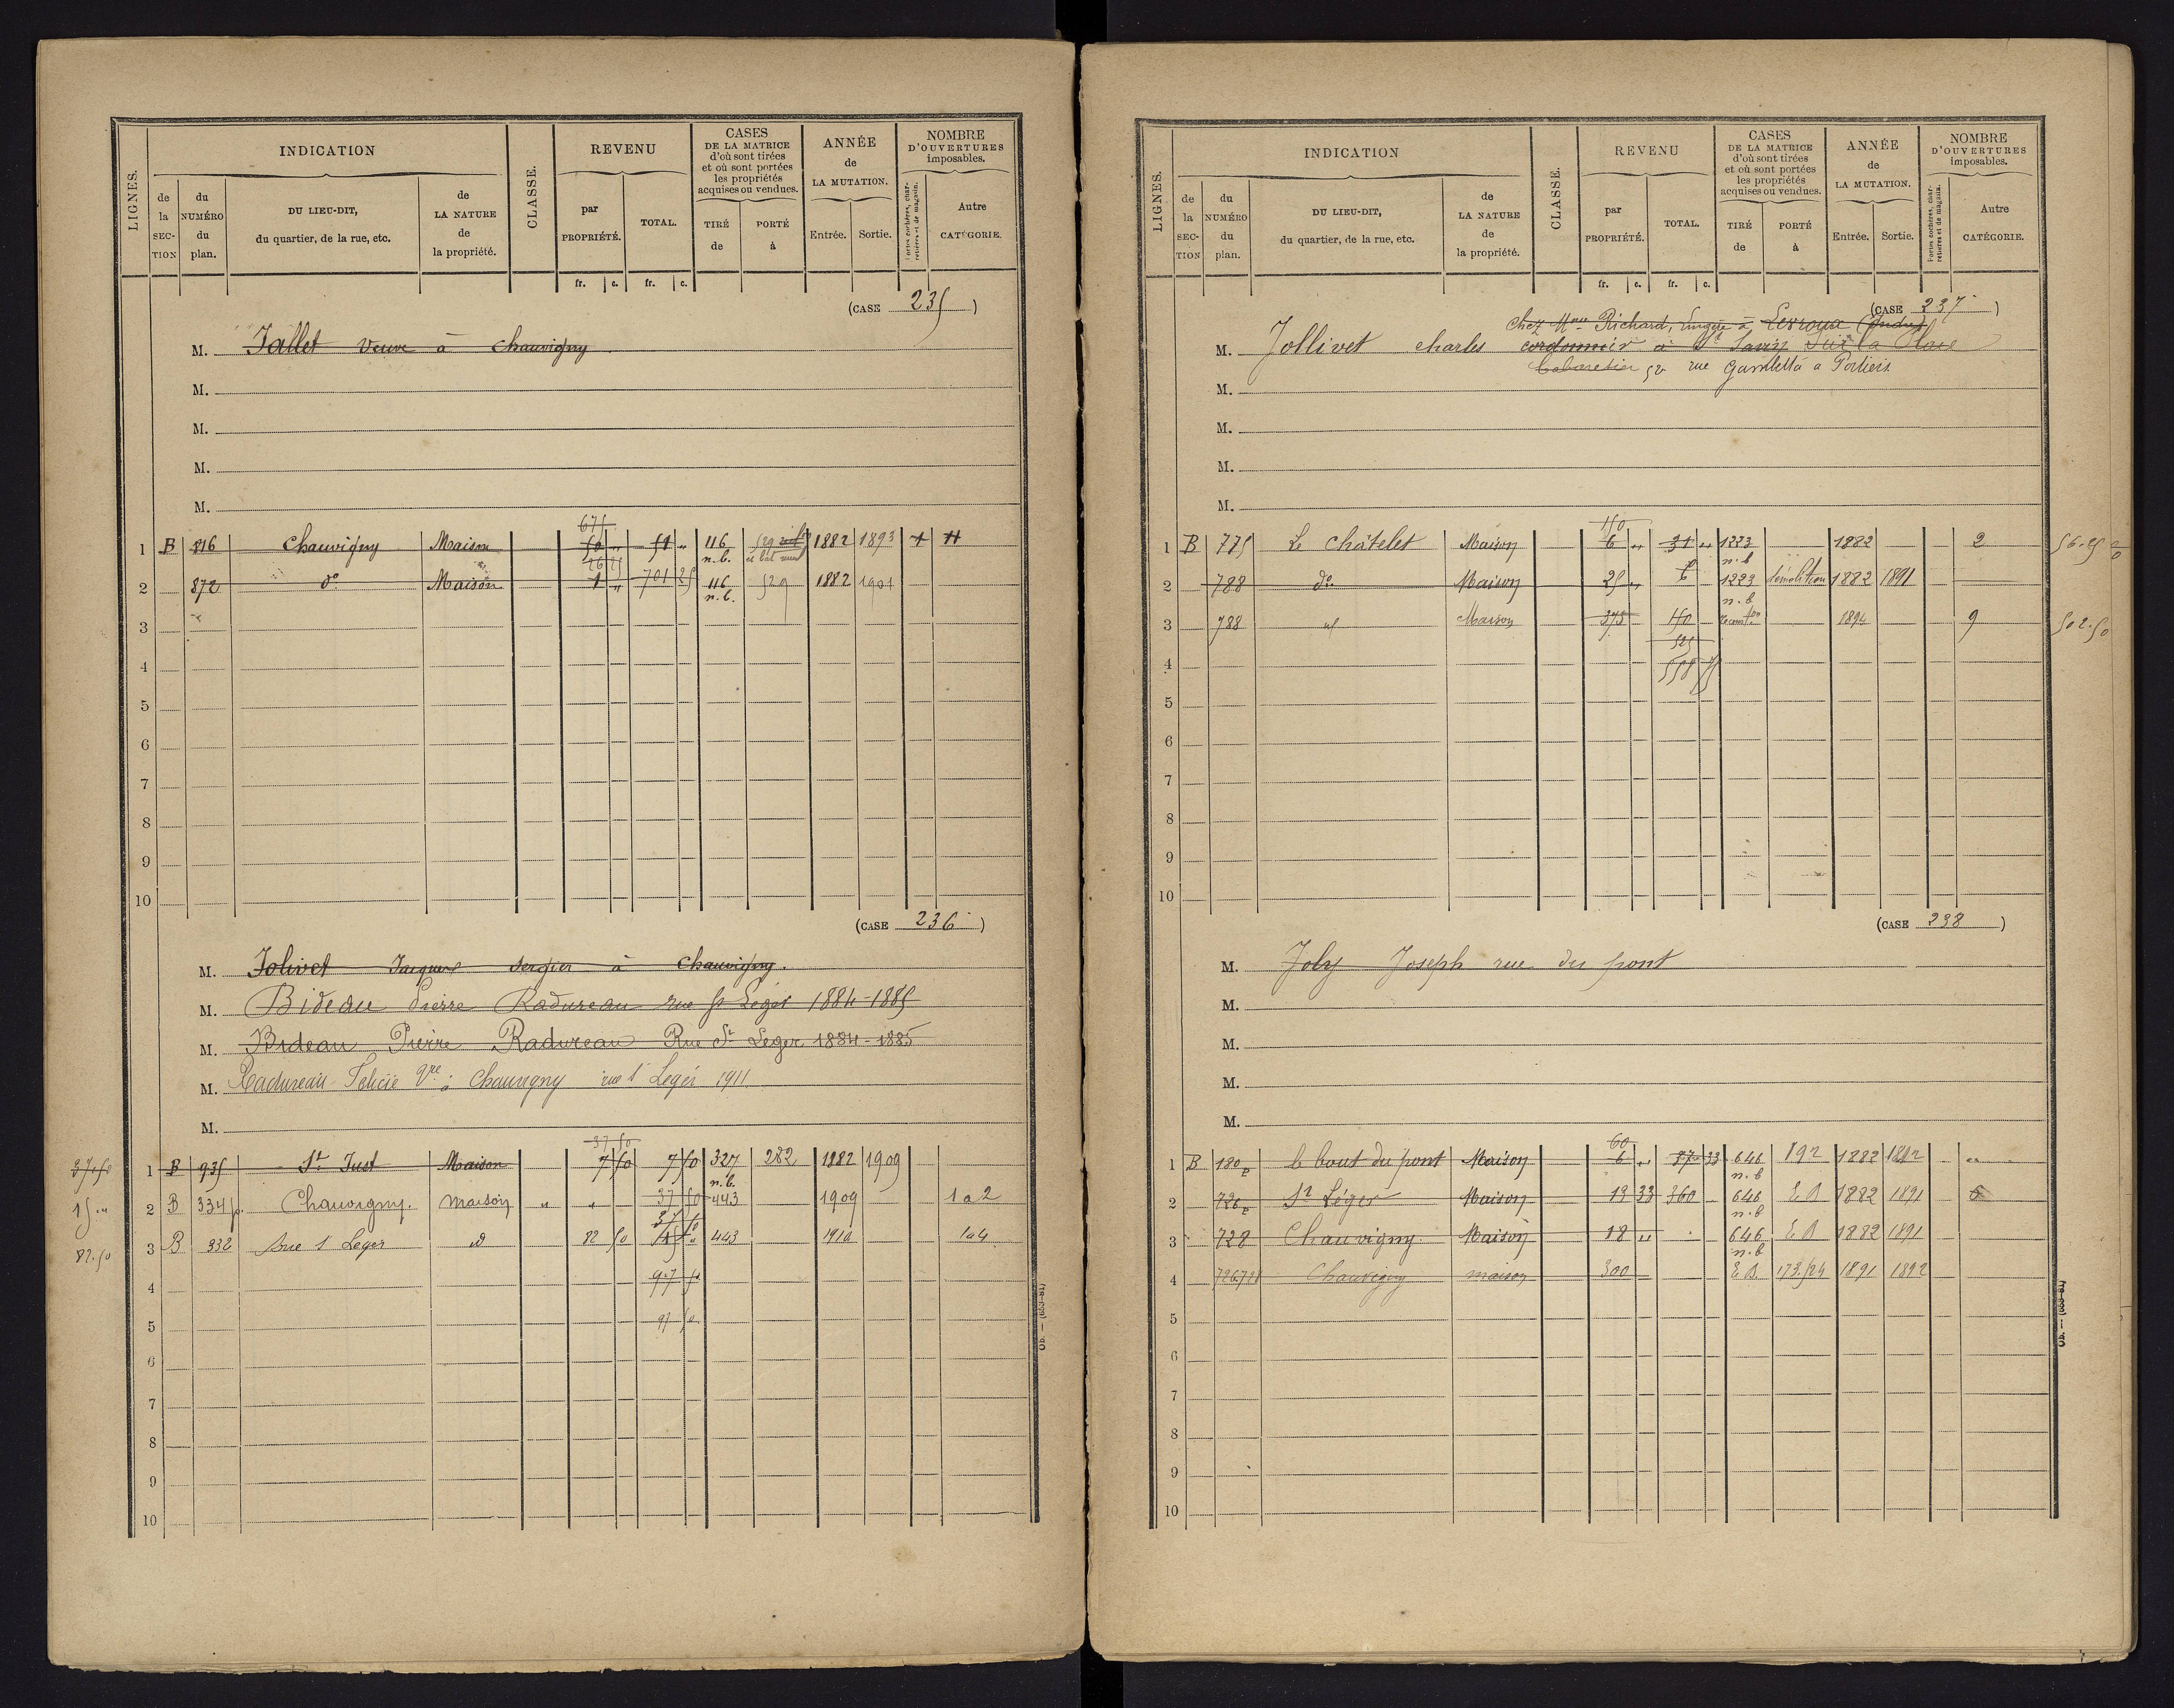 LIGNES. INDICATION CLASSE. REVENU CASES DE LA MATRICE d'où sont tirées et où sont portées les propriétés acquises ou vendues. ANNÉE de LA MUTATION. NOMBRE D'OUVERTURES imposables.
de la SECTION du NUMÉRO du plan. DU LIEU-DIT, du quartier, de la rue, etc. de LA NATURE de la propriété. par PROPRIÉTÉ. TOTAL. TIRÉ de PORTÉ à Entrée. Sortie. Portes cochères, charretières et de magasin. Autre CATÉGORIE.
fr. c. fr. c.
(CASE 235)
M. Jallet Veuve à Chauvigny
M.
M.
M.
M.
675
1 B 816 Chauvigny Maison 50 " 51 " 116 n.b. 529 1882 1893
26 25
2 872 d° Maison 1 " 701 25 116 n.b. 529 1882 1901
3
4
5
6
7
8
9
10
(CASE 236)
M. Jolivet Jacques Sergier à Chauvigny.
M. Bideau Pierre Radureau rue St Léger 1884-1885
M. Bideau Pierre Radureau Rue St Leger 1884-1885
M. Radureau Félicie Vve à Chauvigny rue St Leger 1911
M.
37 50
37.50 1 B 935 St Just Maison 7 50 7 50 327 n.b. 282 1882 1909
15 " 2 B 334 p. Chauvigny. maison " " 37 50 443 1909 1 a 2
37 50
82.50 3 B 332 Rue St Leger d 82 50 15 " 443 1910 1 a 4
4 97 50
5 97 50
6
7
8
9
10
Ob. — (653-81)
LIGNES. INDICATION CLASSE. REVENU CASES DE LA MATRICE d'où sont tirées et où sont portées les propriétés acquises ou vendues. ANNÉE de LA MUTATION. NOMBRE D'OUVERTURES imposables.
de la SECTION du NUMÉRO du plan. DU LIEU-DIT, du quartier, de la rue, etc. de LA NATURE de la propriété. par PROPRIÉTÉ. TOTAL. TIRÉ de PORTÉ à Entrée. Sortie. Portes cochères, charretières et de magasin. Autre CATÉGORIE.
fr. c. fr. c.
(CASE 237)
chez Mme Richard, lingère à Levroux (Indre)
M. Jollivet charles cordonnier à St Savin Sur la Place
Cabaretier 52 rue Gambetta a Poitiers
M.
M.
M.
M.
150
1 B 775 Le Châtelet Maison 6 " 31 " 1223 n.b 1882 2 56.25
2 788 d° Maison 25 " 6 1223 n.b démolition 1882 1891
3 788 id Maison 375 150 reconst.on 1894 9 502.50
525
4 558 75
5
6
7
8
9
10
(CASE 238)
M. Joly Joseph rue du pont
M.
M.
M.
M.
60
1 B 180 p le bout du pont Maison 6 " 37 33 646 n.b 192 1882 1892 "
2 726 p St Léger Maison 13 33 360 646 n.b E B 1882 1891 6
3 728 Chauvigny Maison 18 " 646 n.b E B 1882 1891
4 726.728 Chauvigny maison 300 E B. 173.524 1891 1892
5
6
7
8
9
10
Ob. — (653-81)